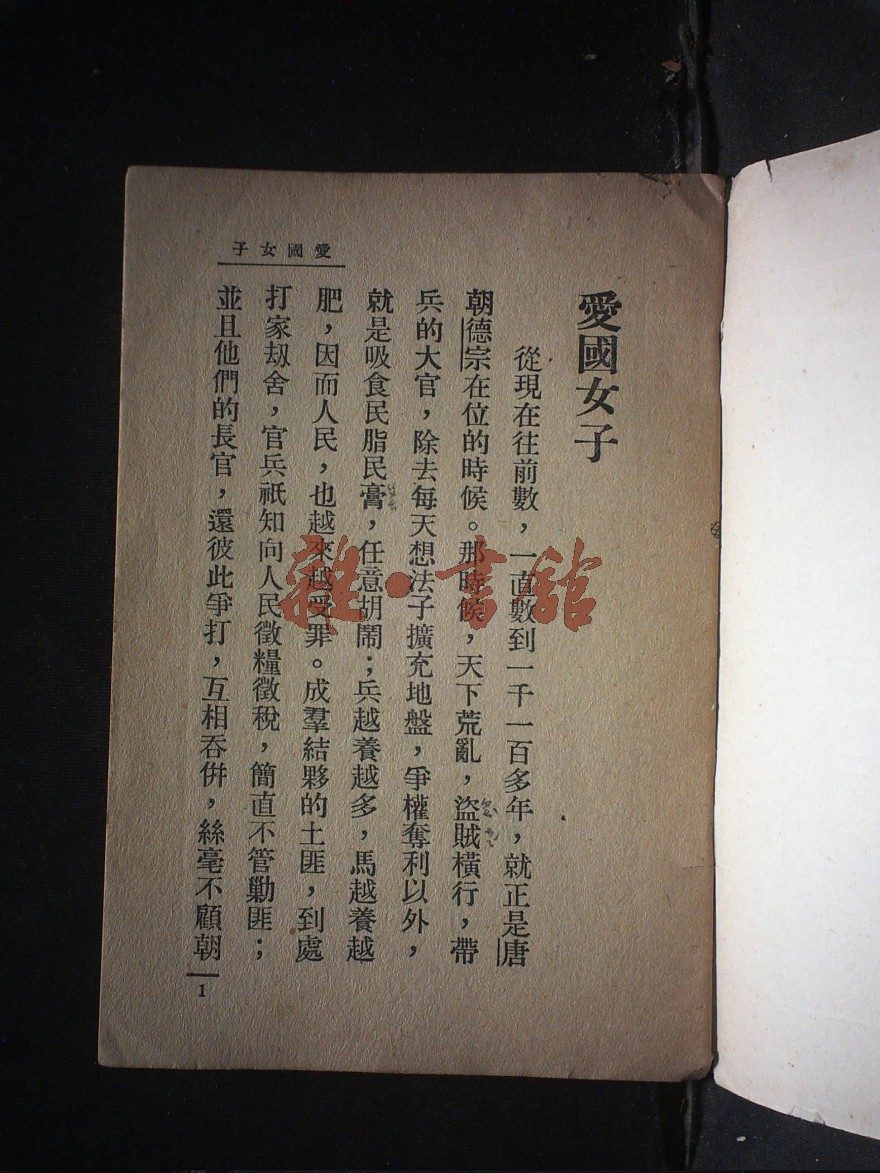 愛國女子
愛國女子
從現在往前數，一直數到一千一百多年，就正是唐
朝德宗在位的時候。那時候，天下荒亂，盜賊橫行，帶
兵的大官，除去每天想法子擴充地盤，爭權奪利以外，
就是吸食民脂民膏，任意胡鬧；兵越養越多，馬越養越
肥，因而人民，也越來越受罪。成羣結夥的土匪，到處
打家刼舍，官兵祇知向人民徵糧徵稅，簡直不管勦匪；
並且他們的長官，還彼此爭打，互相吞併，絲毫不顧朝
1
雜·書館